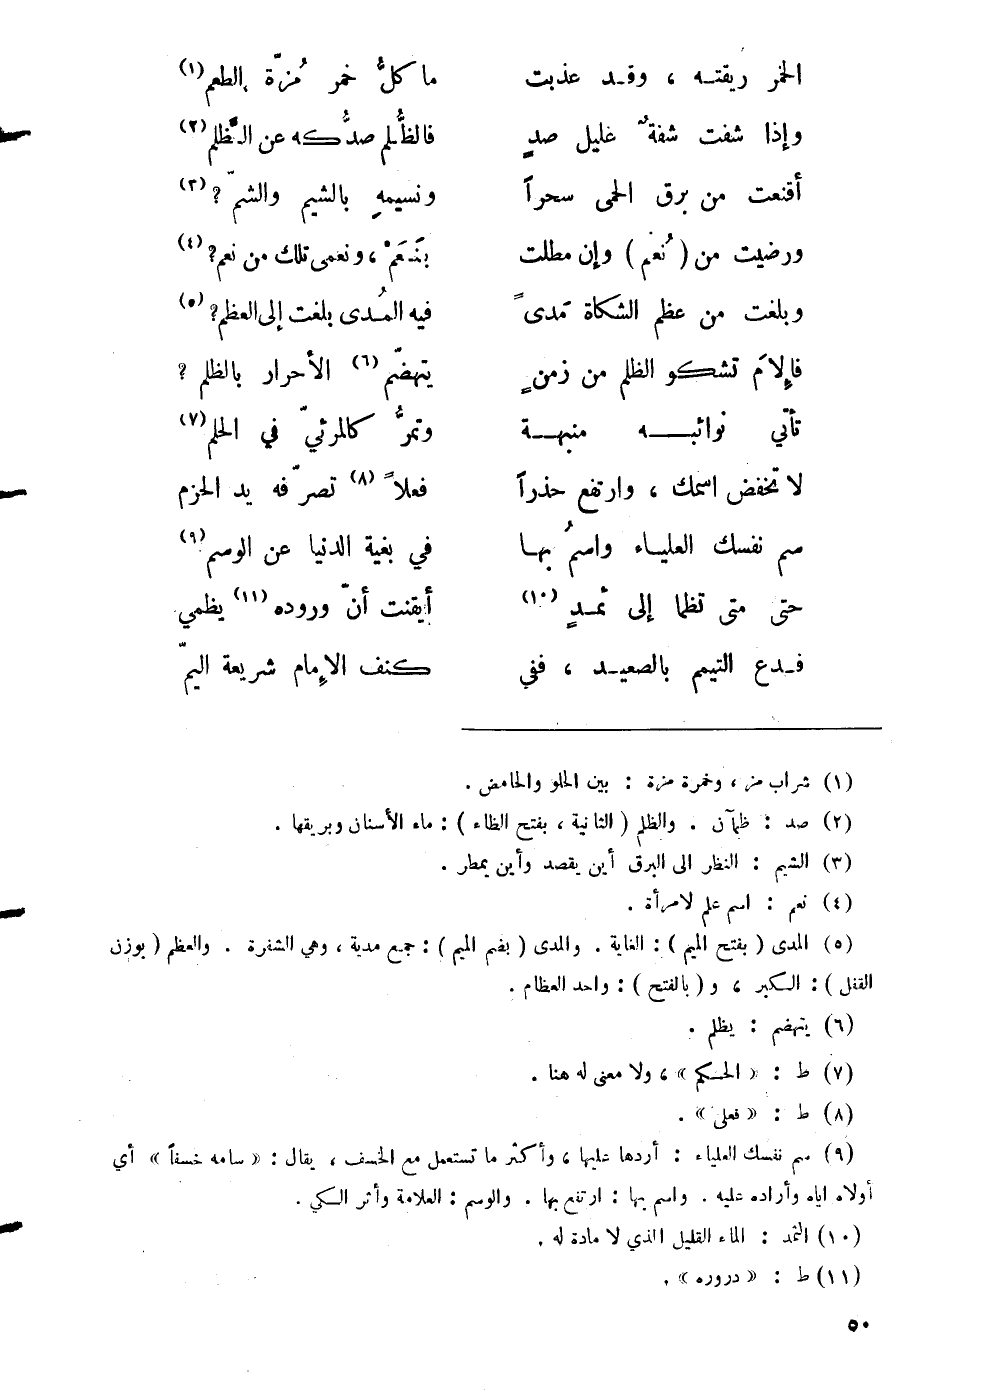 الخمر ريقته ، وقد عذبت ما كلُّ خمر مُزّة الطعم(١)
وإذا شفت شفةٌ غليل صدٍ فالظُّلم صدُّكه عن الظَّلم(٢)
أقنعت من برق الحمى سحراً ونسيمهِ بالشيم والشمّ ؟(٣)
ورضيت من ( نُعْم ) وإن مطلت بنَعَمْ ، ونعمى تلك من نعم؟(٤)
وبلغت من عظم الشكاة مَدىً فيه المُدى بلغت إلى العظم؟(٥)
فإِلامَ تشكو الظلم من زمنٍ يتهضّم(٦) الأحرار بالظلم ؟
تأتي نوائبه منبهة وتمرُّ كالمرئيّ في الحلم(٧)
لا تخفض اسمك ، وارتفع حذراً فعلاً(٨) تصرّفه يد الحزم
سم نفسك العلياء واسمُ بها في بغية الدنيا عن الوسم(٩)
حتى متى تظما إلى ثمدٍ(١٠) أيقنت أنّ وروده(١١) يظمي
فدع التيمم بالصعيد ، ففي كنف الإمام شريعة اليمّ
(١) شراب مز ، وخمرة مزة : بين الحلو والحامض .
(٢) صد : ظمآن . والظلم ( الثانية ، بفتح الظاء ) : ماء الأسنان وبريقها .
(٣) الشيم : النظر الى البرق أين يقصد وأين يمطر .
(٤) نعم : اسم علم لامرأة .
(٥) المدى ( بفتح الميم ) : الغاية . والمدى ( بضم الميم ) : جمع مدية ، وهي الشفرة . والعظم ( بوزن
القفل ) : الكبر ، و ( بالفتح ) : واحد العظام .
(٦) يتهضم : يظلم .
(٧) ط : « الحكم » ، ولا معنى له هنا .
(٨) ط : « فعلى » .
(٩) سم نفسك العلياء : أردها عليها ، وأكثر ما تستعمل مع الخسف ، يقال : « سامه خسفاً » أي
أولاه اياه وأراده عليه . واسم بها : ارتفع بها . والوسم : العلامة وأثر الكي .
(١٠) الثمد : الماء القليل الذي لا مادة له .
(١١) ط : « دروره » .
٥٠